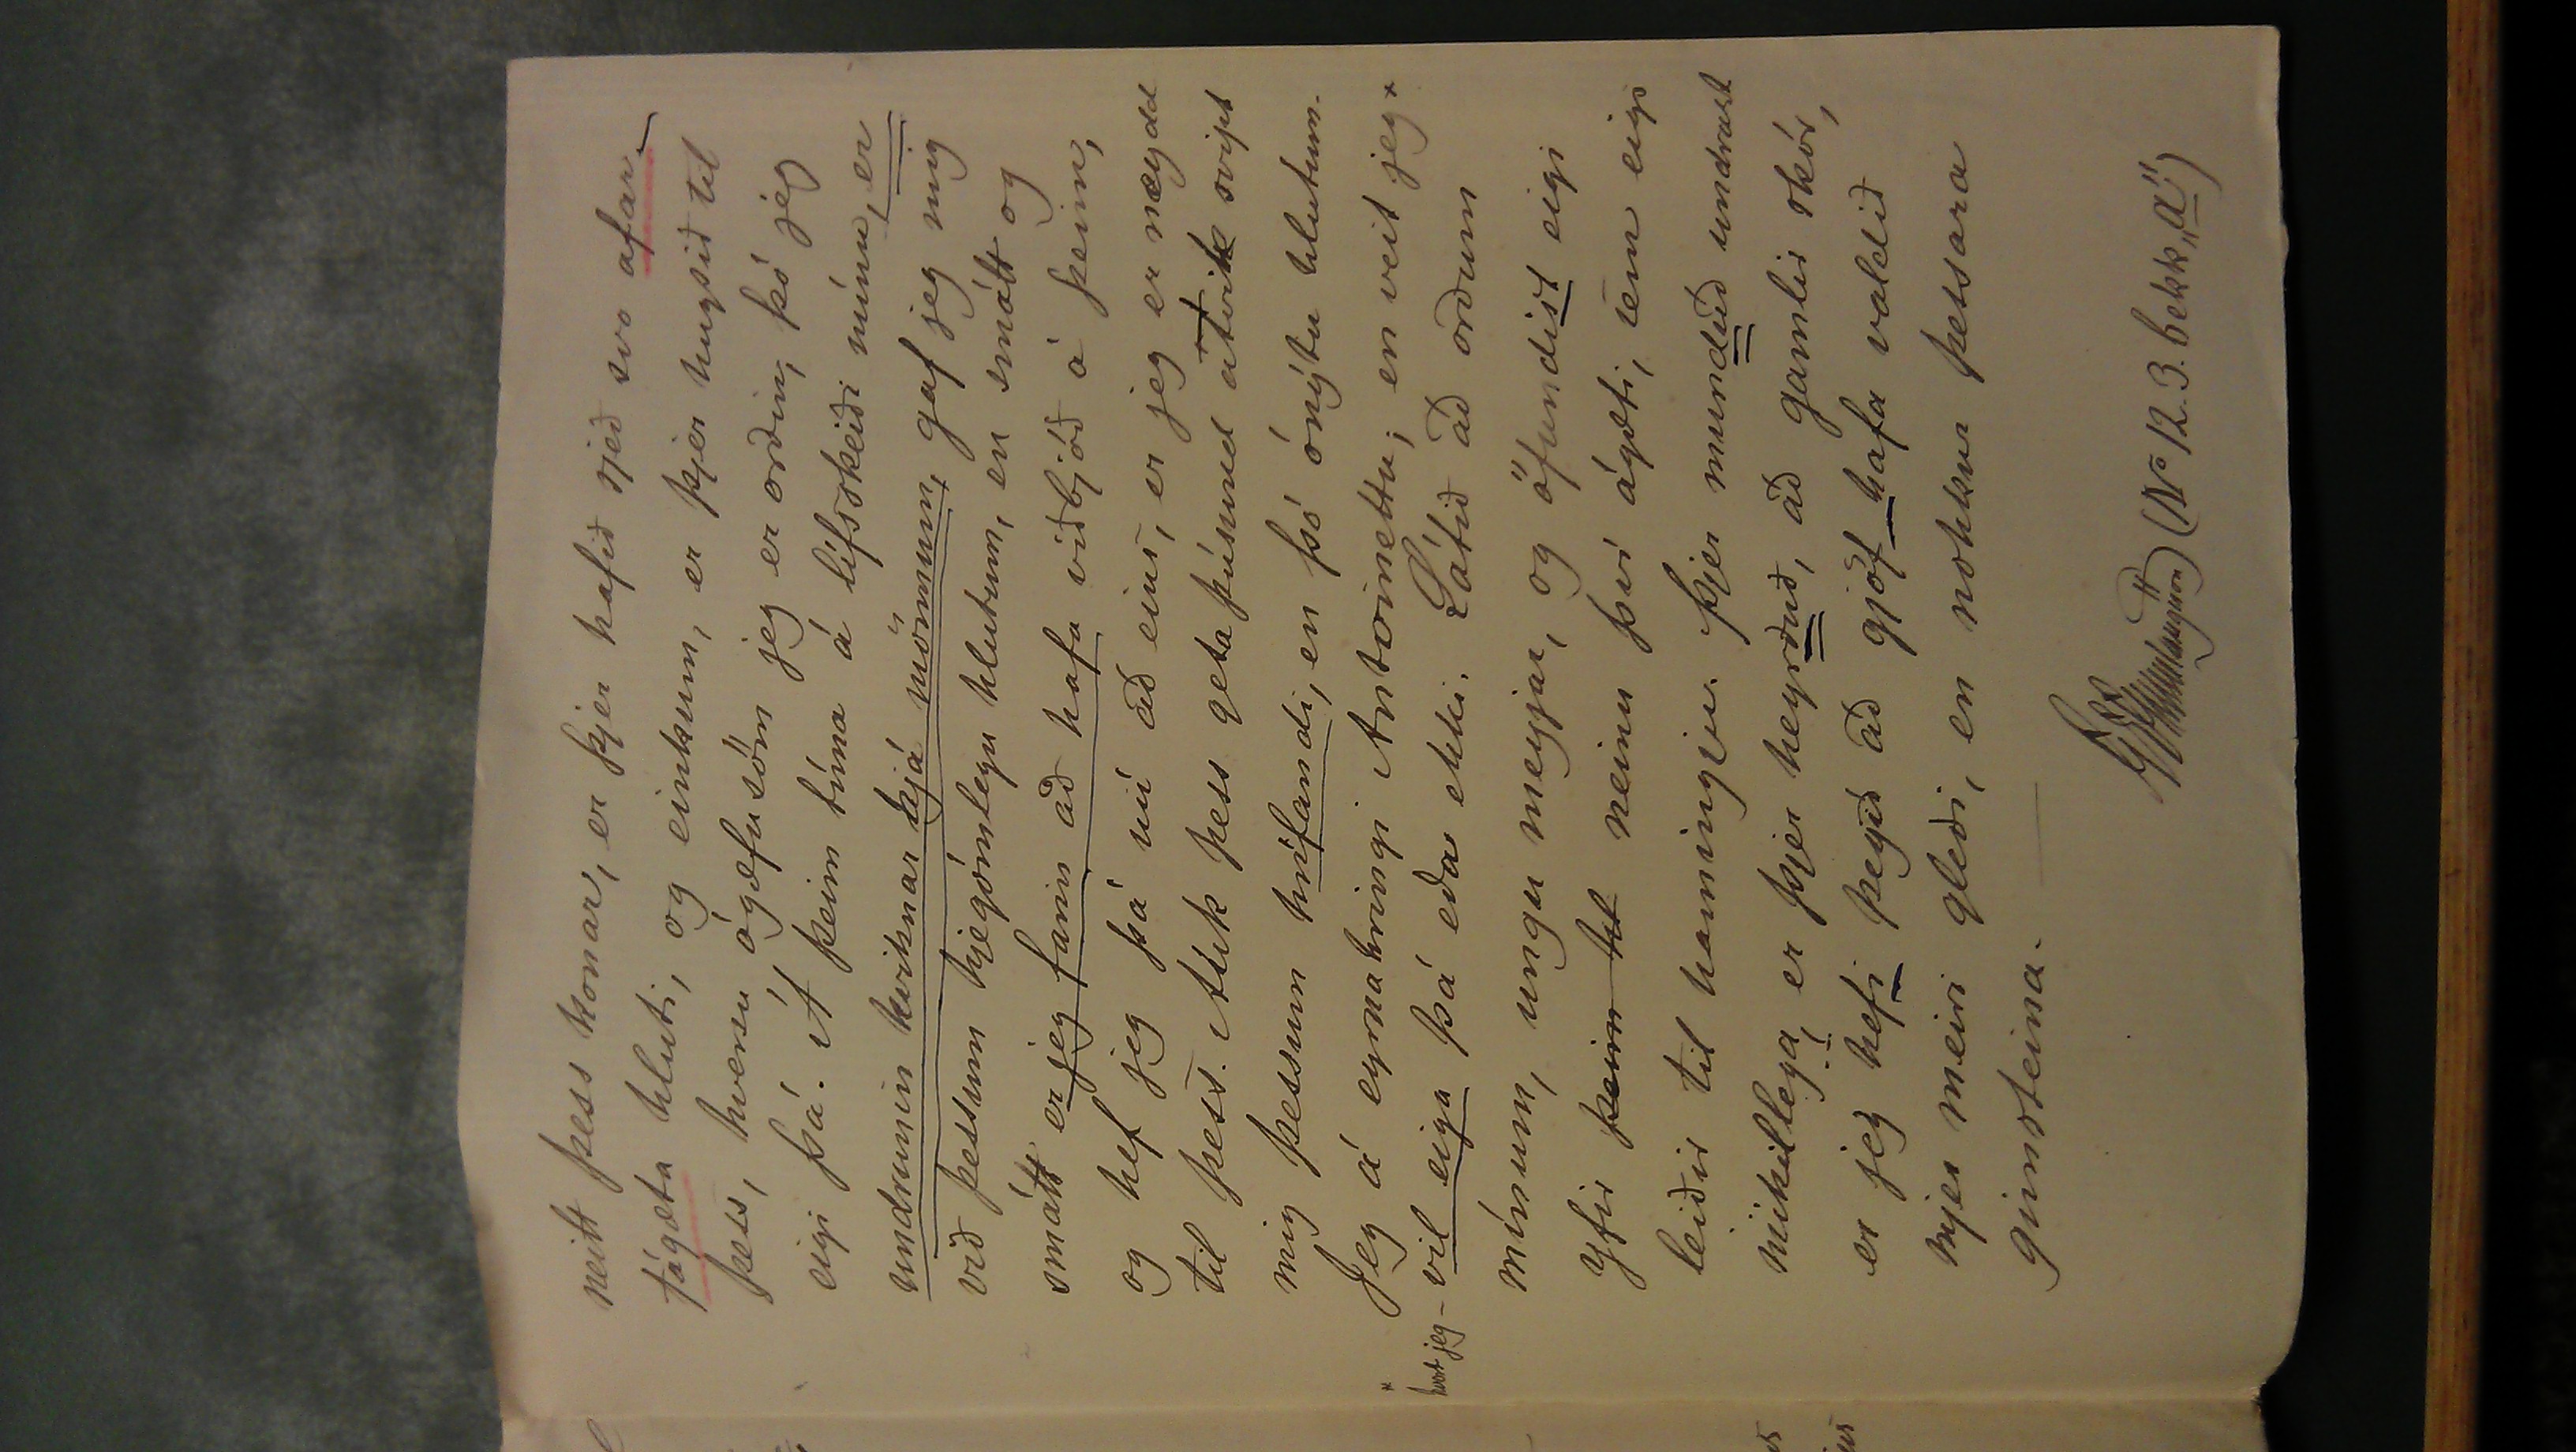 neitt þess konar, er þjer hafið sjeð svo afar-
fágæta hluti, og einkum, er þjer hugsið til
þess, hversu ógæfusöm jeg er orðin, þó jeg
eigi þá. Á þeim tíma á lífsskeiði mínu, er
undrunin kviknar hjá mönnum, gaf jeg mig
við þessum hjegómlegu hlutum, en smátt og
smátt er jeg farin að hafa viðbjóð á þeim,
og hef jeg þá nú að eins, er jeg er neydd
til þess. Slík þess geta þúsund atvik svipt
mig þessum hrífandi, en þó ónýtu hlutum.
Jeg á eyrnahringi Antoinettu; en veit jeg *
* hvort jeg - vil eiga þá eða ekki. Látið að orðum
mínum, ungu meyjar, og öfundist eigi
yfir þeim til neinu því ágæti, sem eigi
leiðir til hamingju. Þjer munduð undrast
mikillega, er þjer heyrðuð, að gamlir skór,
er jeg hefi þegið að gjöf hafa valdið
mjer meiri gleði, en nokkur þessara
gimsteina.
(No 12. 3. bekk „a“)